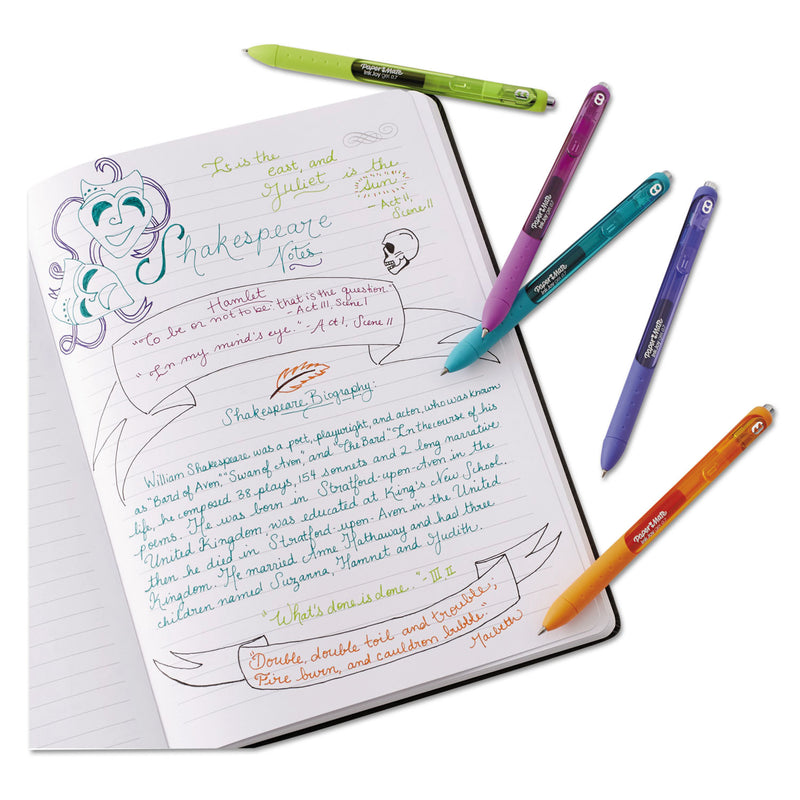 It is the
east, and
Juliet is the
Sun.
- Act II,
Scene II
Shakespeare
Notes
Hamlet
"To be or not to be: that is the question."
- Act III, Scene I
"In my mind's eye." - Act I, Scene II
Shakespeare Biography:
William Shakespeare was a poet, playwright, and actor, who was known
as "Bard of Avon," "Swan of Avon", and "The Bard." In the course of his
life, he composed 38 plays, 154 sonnets and 2 long narrative
poems. He was born in Stratford-upon-Avon in the
United Kingdom was educated at King's New School.
then he died in Stratford-upon-Avon in the United
Kingdom. He married Anne Hathaway and had three
children named Suzanna, Hamnet and Judith.
"What's done is done." - III, II
"Double, double toil and trouble;
Fire burn, and cauldron bubble."
Macbeth
Paper Mate
InkJoy gel 0.7
Paper Mate
InkJoy gel 0.7
Paper Mate
InkJoy gel 0.7
Paper Mate
InkJoy gel 0.7
Paper Mate
InkJoy gel 0.7